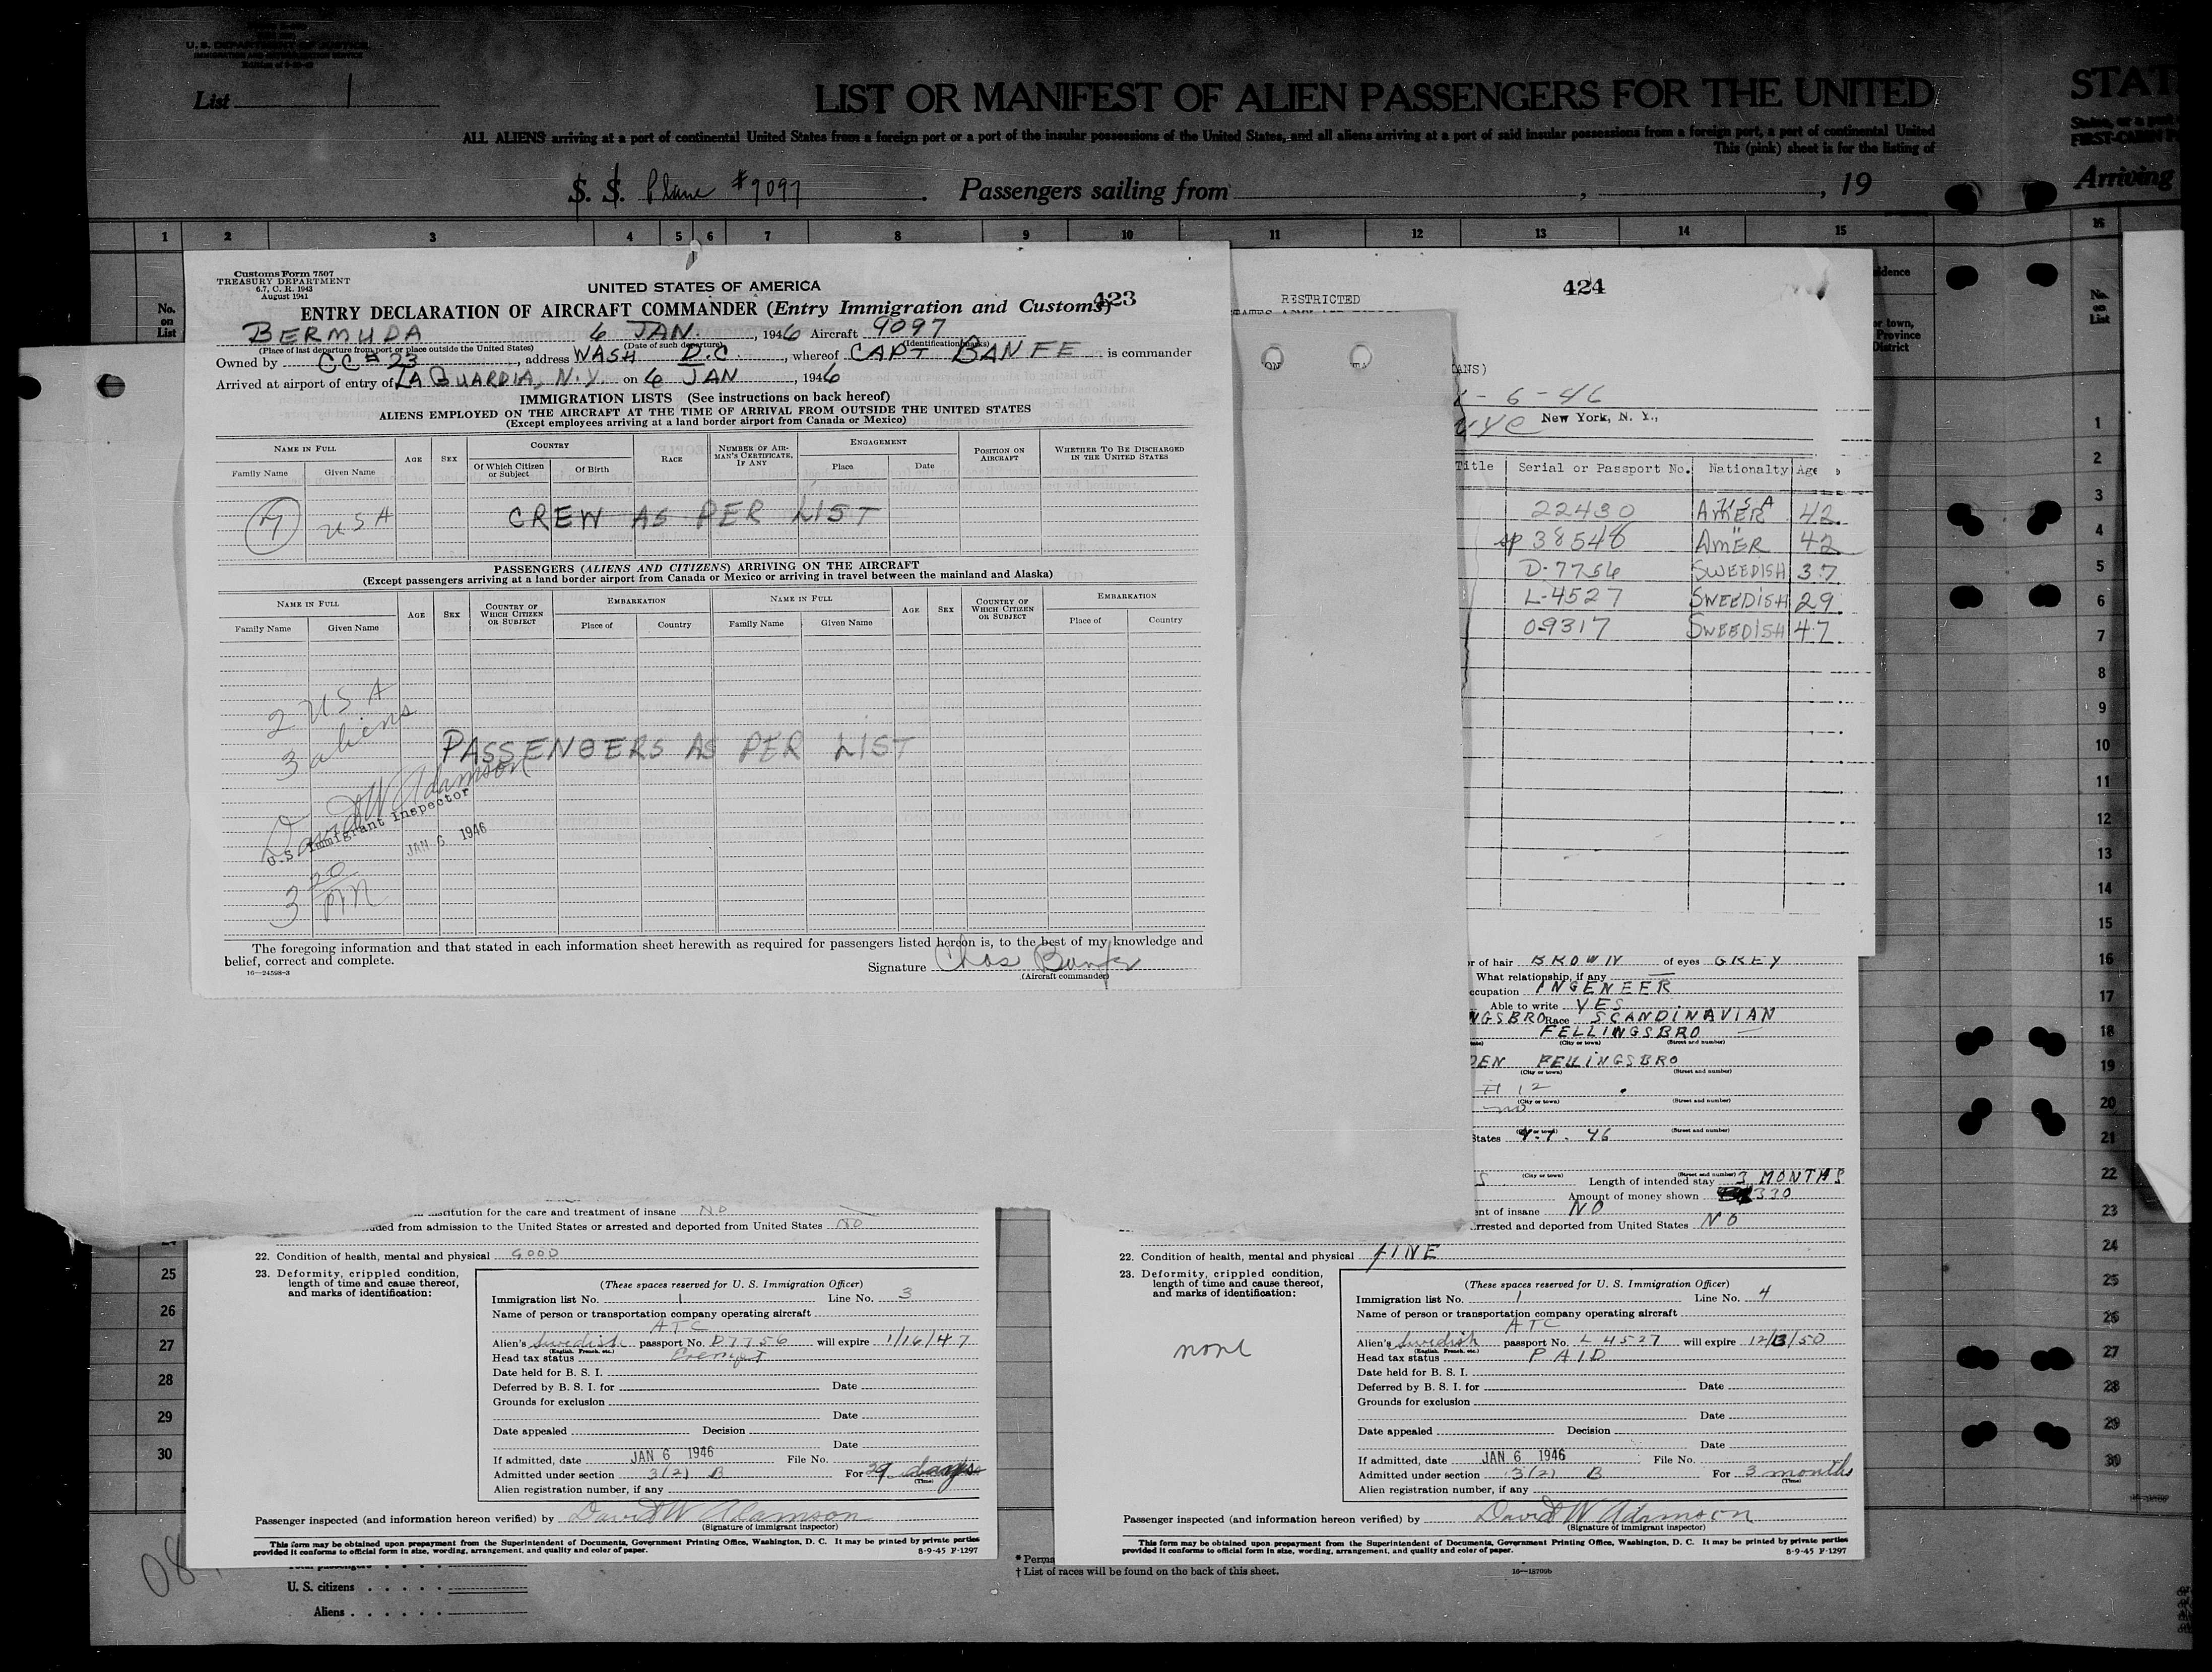 U. S. DEPARTMENT OF JUSTICE
List 1
LIST OR MANIFEST OF ALIEN PASSENGERS FOR THE UNITED
STAT
ALL ALIENS arriving at a port of continental United States from a foreign port or a port of the insular possessions of the United States, and all aliens arriving at a port of said insular possessions from a foreign port, a port of continental United
This (pink) sheet is for the listing of
S. S. Plane #9097. Passengers sailing from , , 19
Arriving
1 2 3 4 5 6 7 8 9 10 11 12 13 14 15
No. on List
Customs Form 7507
TREASURY DEPARTMENT
6.7, C. R. 1943
August 1941
UNITED STATES OF AMERICA
423
ENTRY DECLARATION OF AIRCRAFT COMMANDER (Entry Immigration and Customs)
BERMUDA 6 JAN. , 1946 Aircraft 9097
(Place of last departure from port or place outside the United States) (Date of such departure) (Identification marks)
Owned by CC #23 , address WASH D.C. , whereof CAPT BANFE is commander
Arrived at airport of entry of LA GUARDIA, N.Y. on 6 JAN , 1946
IMMIGRATION LISTS (See instructions on back hereof)
ALIENS EMPLOYED ON THE AIRCRAFT AT THE TIME OF ARRIVAL FROM OUTSIDE THE UNITED STATES
(Except employees arriving at a land border airport from Canada or Mexico)
NAME IN FULL AGE SEX COUNTRY RACE NUMBER OF AIRMAN'S CERTIFICATE, IF ANY ENGAGEMENT POSITION ON AIRCRAFT WHETHER TO BE DISCHARGED IN THE UNITED STATES
Family Name Given Name Of Which Citizen or Subject Of Birth Place Date
7 USA CREW AS PER LIST
PASSENGERS (ALIENS AND CITIZENS) ARRIVING ON THE AIRCRAFT
(Except passengers arriving at a land border airport from Canada or Mexico or arriving in travel between the mainland and Alaska)
NAME IN FULL AGE SEX COUNTRY OF WHICH CITIZEN OR SUBJECT EMBARKATION NAME IN FULL AGE SEX COUNTRY OF WHICH CITIZEN OR SUBJECT EMBARKATION
Family Name Given Name Place of Country Family Name Given Name Place of Country
2 USA
3 aliens
PASSENGERS AS PER LIST
David W Adamson
U.S. Immigrant Inspector
JAN 6 1946
3 20 PM
The foregoing information and that stated in each information sheet herewith as required for passengers listed hereon is, to the best of my knowledge and
belief, correct and complete.
16—24598-3
Signature Chas Banfe
(Aircraft commander)
424
RESTRICTED
ANS)
- 6 - 46
NYC New York, N. Y.,
Title Serial or Passport No. Nationalty Age
22430 AMER USA 42
38548 AMER " 42
D-7756 SWEEDISH 37
L-4527 SWEEDISH 29
09317 SWEEDISH 47
r of hair BROWN of eyes GREY
What relationship, if any —
ccupation INGENEER
Able to write YES
NGSBRO Race SCANDINAVIAN
FELLINGSBRO
(City or town) (Street and number)
DEN FELLINGSBRO
(City or town) (Street and number)
12
(City or town) (Street and number)
no
States 46
(City or town) (Street and number)
Length of intended stay 3 MONTHS
Amount of money shown 330
nt of insane NO
rrested and deported from United States NO
22. Condition of health, mental and physical FINE
23. Deformity, crippled condition,
length of time and cause thereof,
and marks of identification:
none
(These spaces reserved for U. S. Immigration Officer)
Immigration list No. 1 Line No. 4
Name of person or transportation company operating aircraft
ATC
Alien's Swedish passport No. L 4527 will expire 12/13/50
(English, French, etc.)
Head tax status PAID
Date held for B. S. I.
Deferred by B. S. I. for Date
Grounds for exclusion
Date
Date appealed Decision
Date
If admitted, date JAN 6 1946 File No.
Admitted under section 3(2) B For 3 months
(Time)
Alien registration number, if any
Passenger inspected (and information hereon verified) by David W Adamson
(Signature of immigrant inspector)
This form may be obtained upon prepayment from the Superintendent of Documents, Government Printing Office, Washington, D. C. It may be printed by private parties
provided it conforms to official form in size, wording, arrangement, and quality and color of paper.
8-9-45 F-1297
stitution for the care and treatment of insane NO
uded from admission to the United States or arrested and deported from United States NO
22. Condition of health, mental and physical GOOD
23. Deformity, crippled condition,
length of time and cause thereof,
and marks of identification:
(These spaces reserved for U. S. Immigration Officer)
Immigration list No. 1 Line No. 3
Name of person or transportation company operating aircraft
ATC
Alien's Swedish passport No. D7756 will expire 1/16/47
(English, French, etc.)
Head tax status Exempt
Date held for B. S. I.
Deferred by B. S. I. for Date
Grounds for exclusion
Date
Date appealed Decision
Date
If admitted, date JAN 6 1946 File No.
Admitted under section 3(2) B For 29 days
(Time)
Alien registration number, if any
Passenger inspected (and information hereon verified) by David W Adamson
(Signature of immigrant inspector)
This form may be obtained upon prepayment from the Superintendent of Documents, Government Printing Office, Washington, D. C. It may be printed by private parties
provided it conforms to official form in size, wording, arrangement, and quality and color of paper.
8-9-45 F-1297
25
26
27
28
29
30
U. S. citizens
Aliens
* Perma
† List of races will be found on the back of this sheet.
16—18709b
No. on List
1
2
3
4
5
6
7
8
9
10
11
12
13
14
15
16
17
18
19
20
21
22
23
24
25
26
27
28
29
30